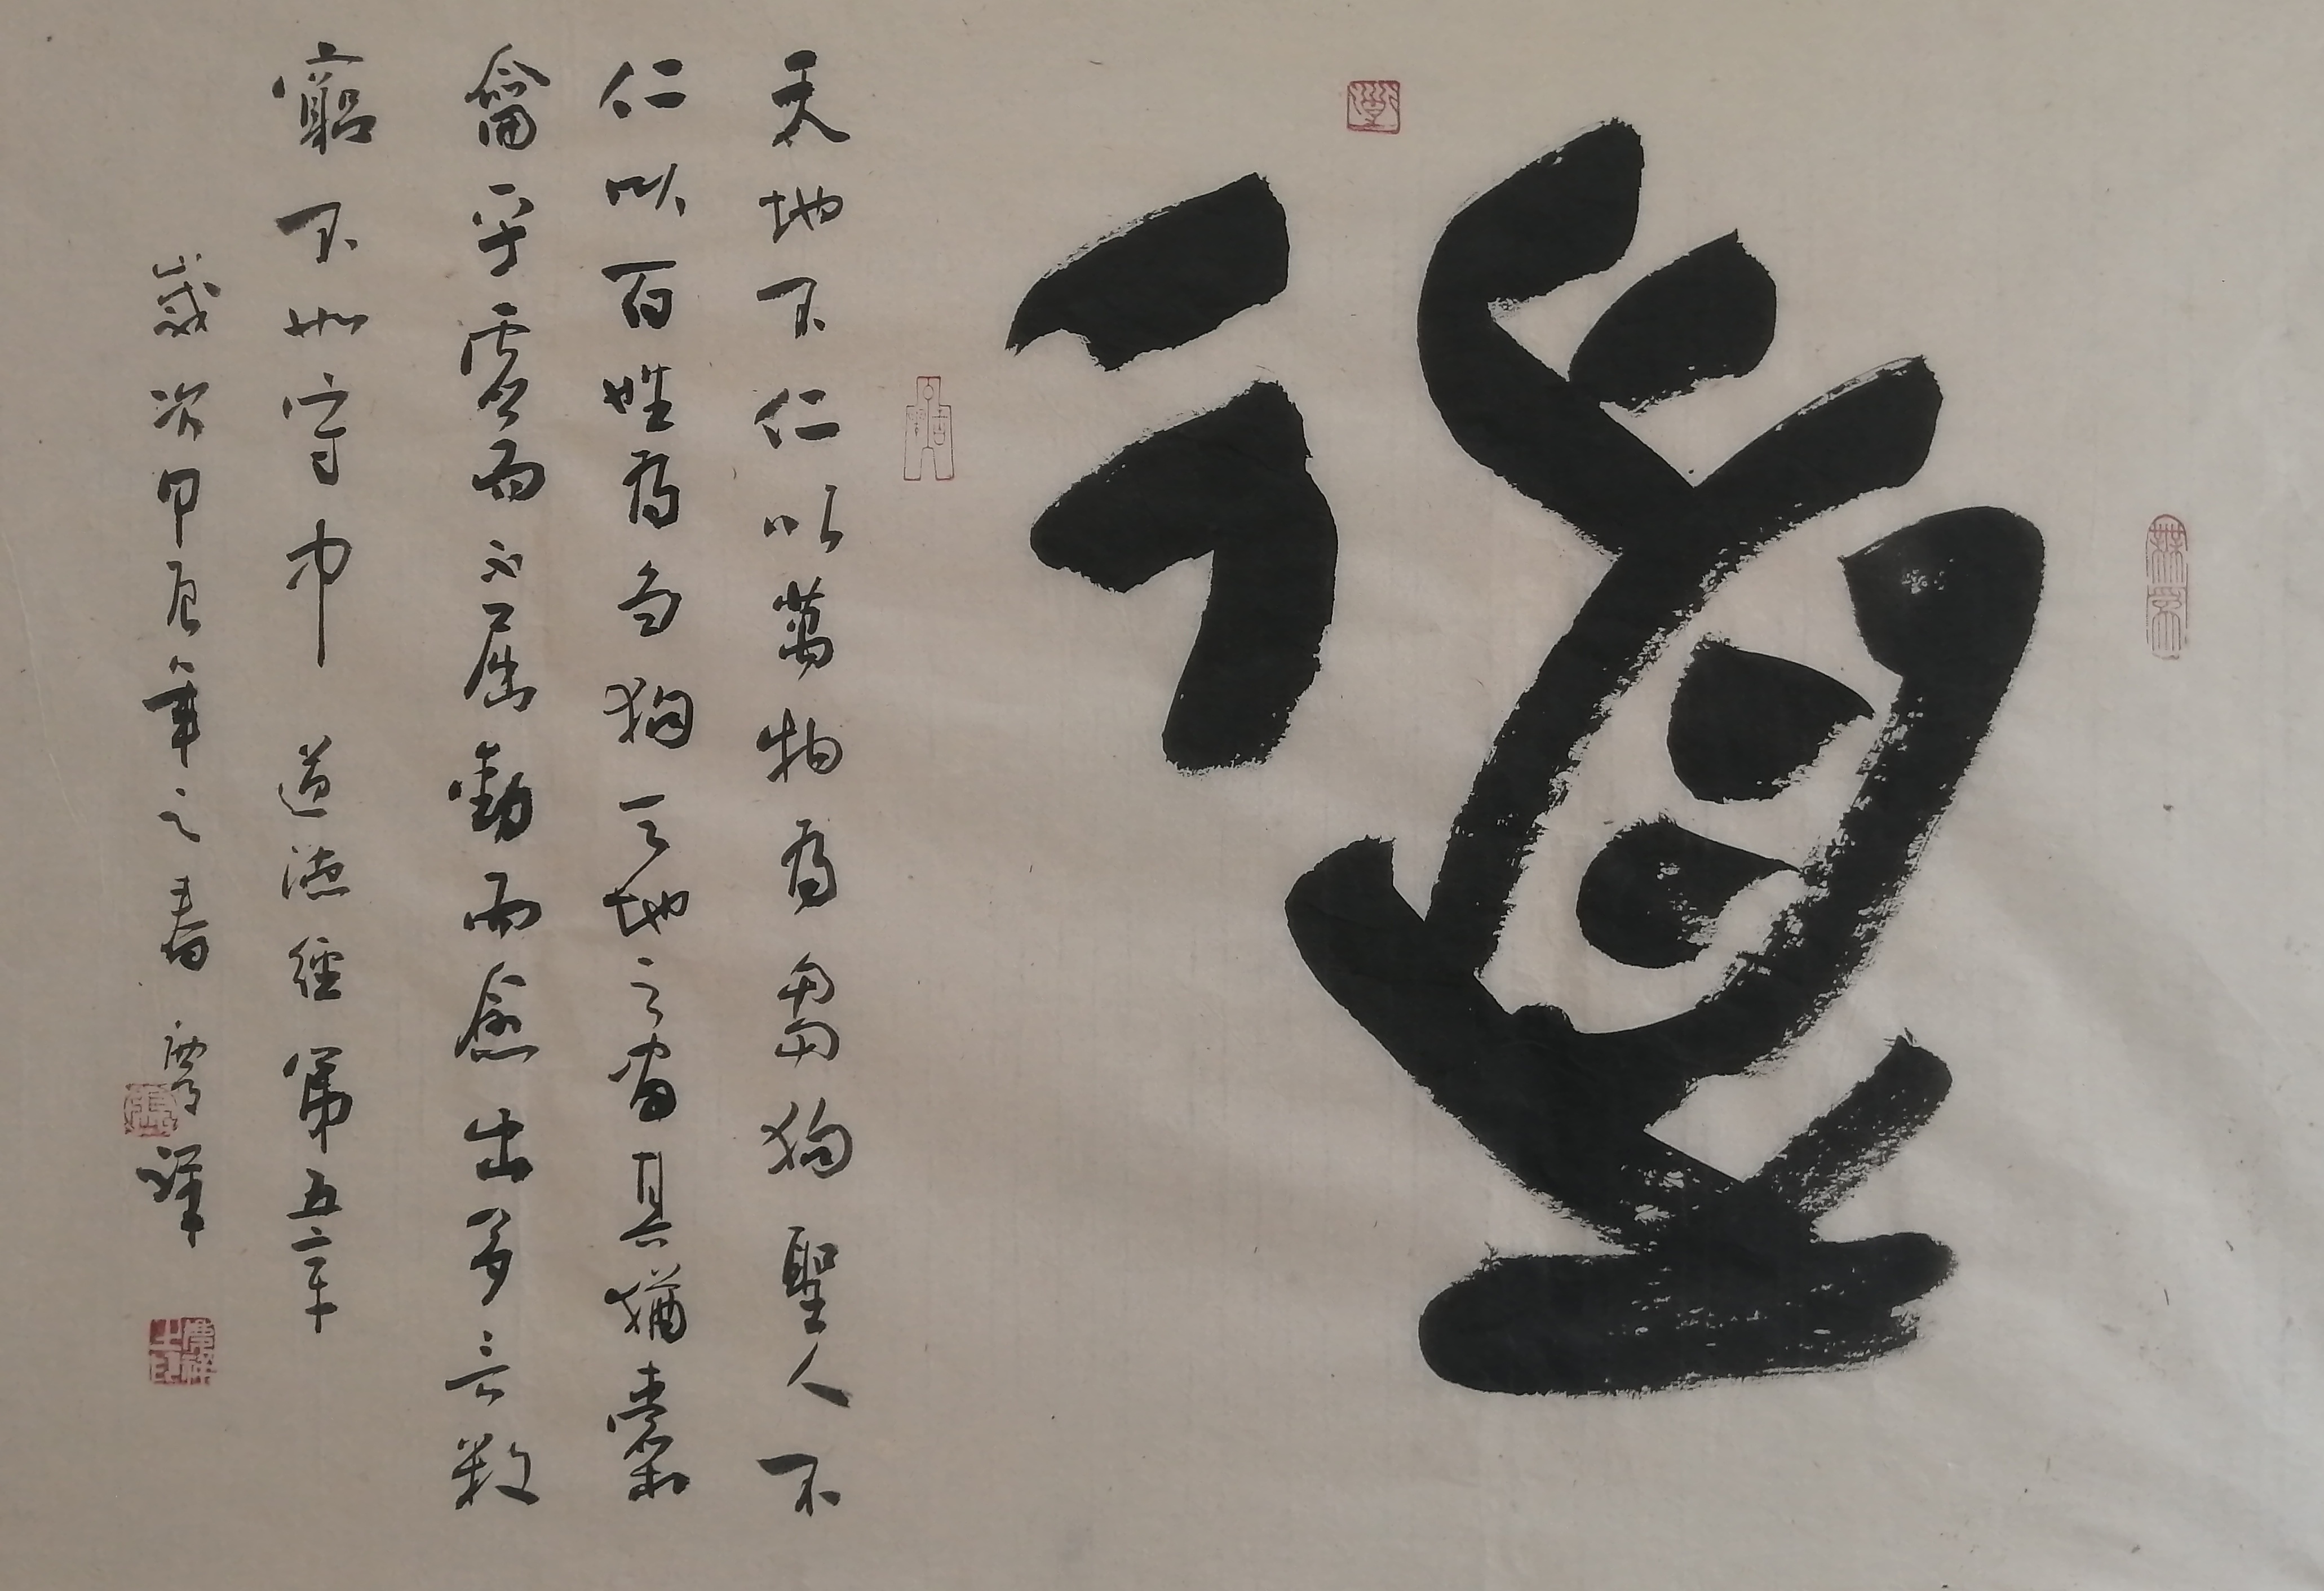 道
天地不仁以萬物為芻狗聖人不
仁以百姓為芻狗天地之間其猶橐
籥乎虛而不屈動而愈出多言數
窮不如守中 道德經第五章
歲次甲辰年之春